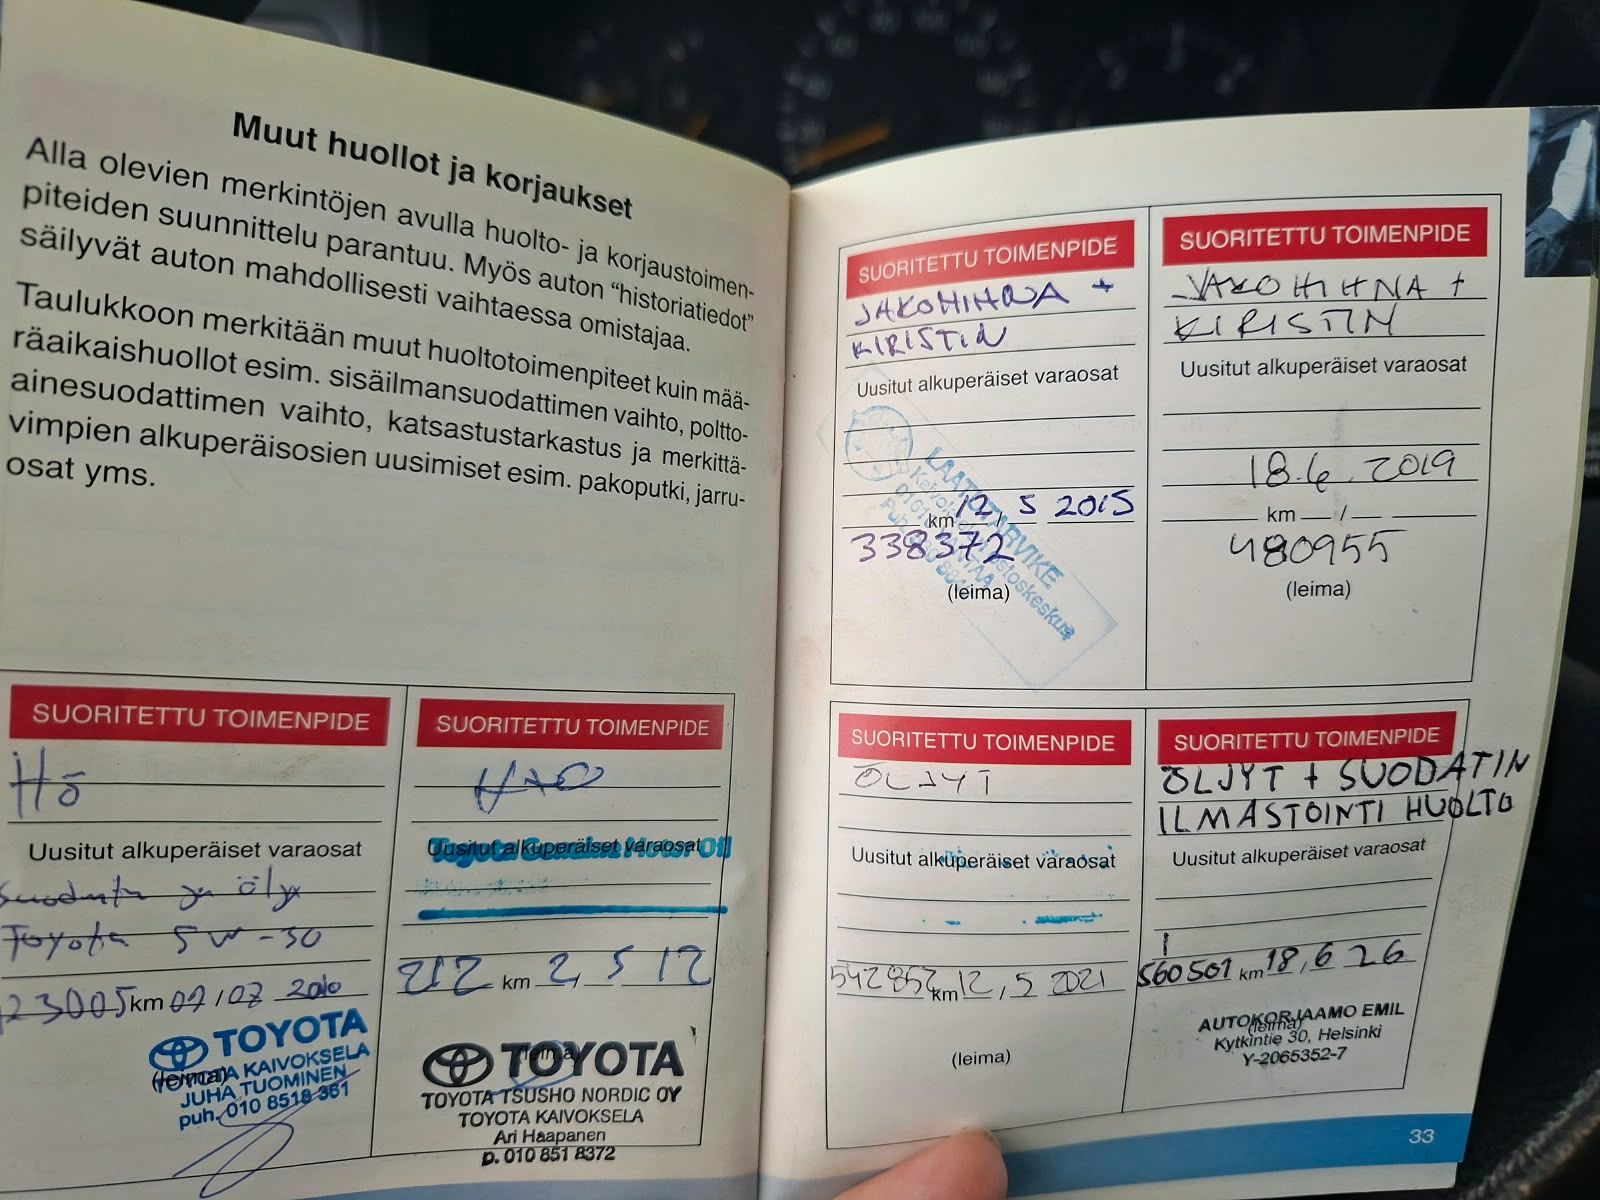 Muut huollot ja korjaukset
Alla olevien merkintöjen avulla huolto- ja korjaustoimen-
piteiden suunnittelu parantuu. Myös auton “historiatiedot”
säilyvät auton mahdollisesti vaihtaessa omistajaa.
Taulukkoon merkitään muut huoltotoimenpiteet kuin mää-
räaikaishuollot esim. sisäilmansuodattimen vaihto, poltto-
ainesuodattimen vaihto, katsastustarkastus ja merkittä-
vimpien alkuperäisosien uusimiset esim. pakoputki, jarru-
osat yms.
SUORITETTU TOIMENPIDE
Hö
Uusitut alkuperäiset varaosat
Suodata ja öljy
Toyota 5W-30
123005 km 09/07 2010
(leima)
TOYOTA
TOYOTA KAIVOKSELA
JUHA TUOMINEN
puh. 010 8518 361
SUORITETTU TOIMENPIDE
Uusitut alkuperäiset varaosat
Toyota Genuine Motor Oil
212 km 2, 5 12
(leima)
TOYOTA
TOYOTA TSUSHO NORDIC OY
TOYOTA KAIVOKSELA
Ari Haapanen
p. 010 851 8372
SUORITETTU TOIMENPIDE
JAKOHIHNA +
KIRISTIN
Uusitut alkuperäiset varaosat
km 12/5 2015
338372
(leima)
LAATUTARVIKE
SUORITETTU TOIMENPIDE
JAKOHIHNA +
KIRISTIN
Uusitut alkuperäiset varaosat
18.6.2019
km / 
480955
(leima)
SUORITETTU TOIMENPIDE
ÖLJYT
Uusitut alkuperäiset varaosat
542852 km 12, 5 2021
(leima)
SUORITETTU TOIMENPIDE
ÖLJYT + SUODATIN
ILMASTOINTI HUOLTO
Uusitut alkuperäiset varaosat
560501 km 18, 6 26
(leima)
AUTOKORJAAMO EMIL
Kytkintie 30, Helsinki
Y-2065352-7
33